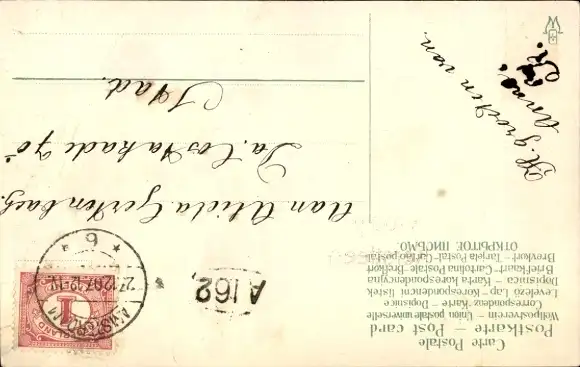 Carte Postale
Postkarte — Post card
Weltpostverein — Union postale universelle
Correspondenz-Karte — Dopisnice
Levelező-Lap — Korespondenční lístek
Dopisnica — Karta korespondencyjna
Briefkaart — Cartolina Postale — Brefkort
Brevkort — Tarjeta Postal — Cartão postal
ОТКРЫТОЕ ПИСЬМО
Aan Alida
Da Costakade 70
Stad.
H. groeten van
A 162
AMSTERDAM
27.12.07
6
1